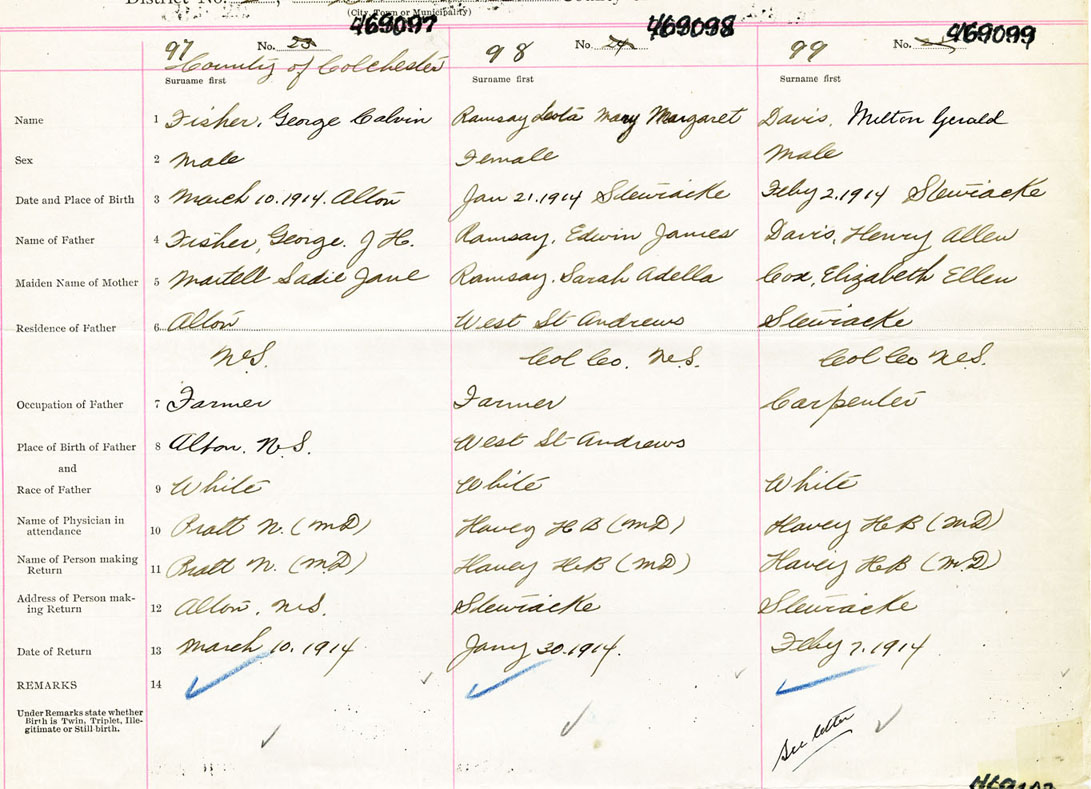 District No.
(City, Town or Municipality)
469097 469098 469099
97 No. 23 98 No. 24 99 No.
County of Colchester
Surname first Surname first Surname first
Name 1 Fisher, George Calvin Ramsay Leota Mary Margaret Davis, Milton Gerald
Sex 2 Male Female Male
Date and Place of Birth 3 March 10. 1914. Alton Jan 21. 1914 Stewiacke Feby 2. 1914 Stewiacke
Name of Father 4 Fisher, George. J H. Ramsay, Edwin James Davis, Henry Allen
Maiden Name of Mother 5 Martell Sadie Jane Ramsay. Sarah Adella Cox, Elizabeth Ellen
Residence of Father 6 Alton West St Andrews Stewiacke
N.S. Col Co. N.S. Col Co N.S.
Occupation of Father 7 Farmer Farmer Carpenter
Place of Birth of Father 8 Alton, N.S. West St Andrews
and
Race of Father 9 White White White
Name of Physician in attendance 10 Bratt N. (MD) Havey H B (MD) Havey H B (MD)
Name of Person making Return 11 Bratt N. (MD) Havey H B (MD) Havey H B (MD)
Address of Person making Return 12 Alton, N.S. Stewiacke Stewiacke
Date of Return 13 March 10. 1914 Jany 30. 1914. Feby 7. 1914
REMARKS 14
Under Remarks state whether
Birth is Twin, Triplet, Ille-
gitimate or Still-birth.
See letter